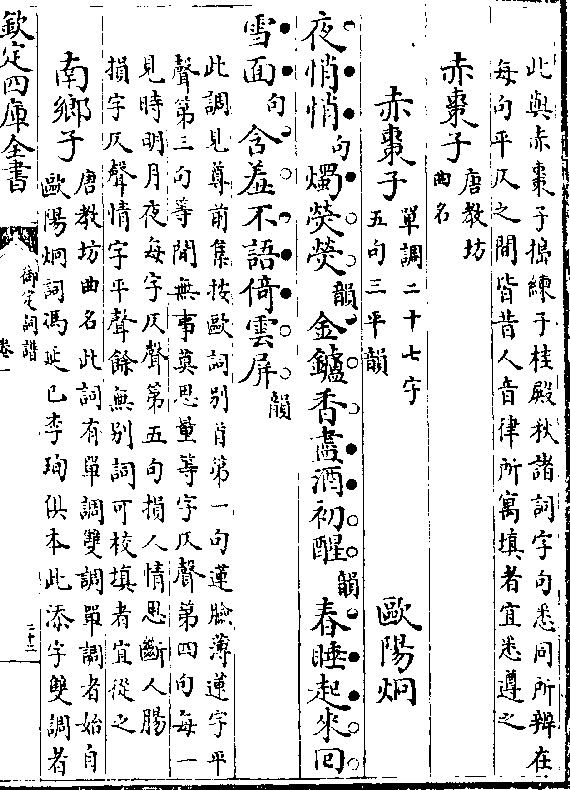 此與赤棗子搗練子桂殿秋諸詞字句悉同所辨在
每句平仄之間皆昔人音律所寓填者宜悉遵之
赤棗子 唐教坊
曲名
赤棗子 單調二十七字
五句三平韻 歐陽炯
夜悄悄句燭熒熒韻金鑪香盡酒初醒韻春睡起來回
雪面句含羞不語倚雲屏韻
此調見尊前集按歐詞别首第一句蓮臉薄蓮字平
聲第三句等閒無事莫思量等字仄聲第四句每一
見時明月夜每字仄聲第五句損人情思斷人腸
損字仄聲情字平聲餘無别詞可校填者宜從之
南鄉子 唐教坊曲名此詞有單調雙調單調者始自
歐陽炯詞馮延巳李珣俱本此添字雙調者
欽定四庫全書
御定詞譜
卷一
二十二